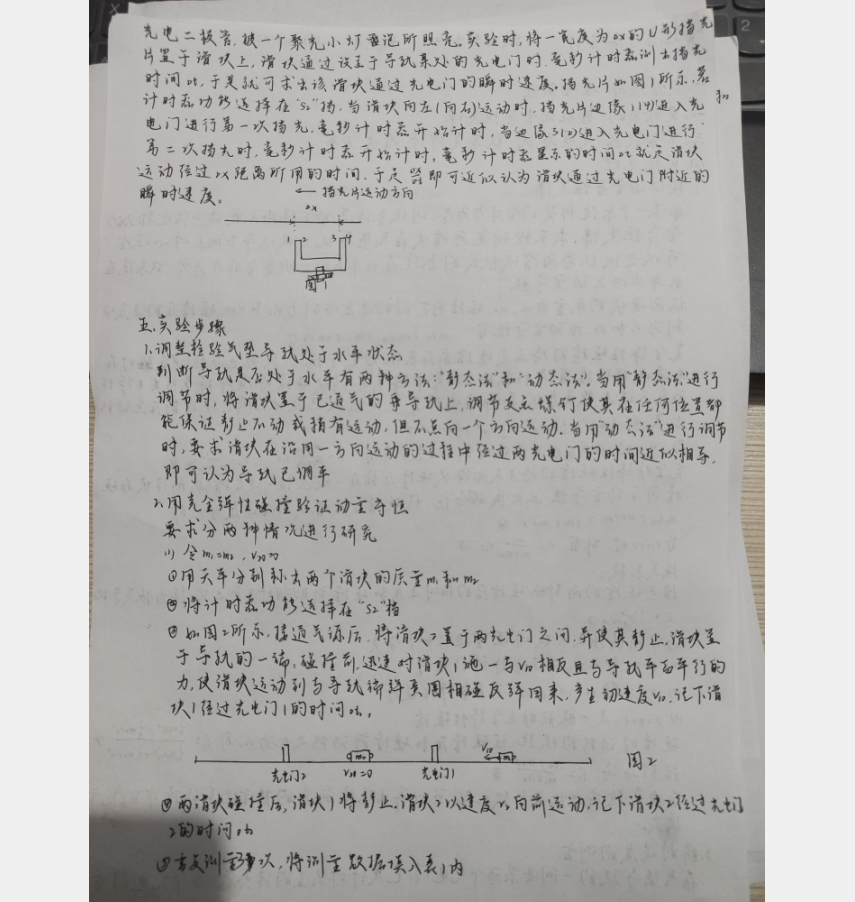 光电二极管,被一个聚光小灯泡所照亮。实验时,将一宽度为△x的U形挡光
片置于滑块上,滑块通过设置于导轨某处的光电门时,毫秒计时器测出挡光
时间△t,于是就可求出该滑块通过光电门的瞬时速度。挡光片如图1所示,若
计时器功能选择在"S2"挡,当滑块向左(向右)运动时,挡光片边缘1(4)进入光
电门进行第一次挡光,毫秒计时器开始计时,当边缘3(2)进入光电门进行
第二次挡光时,毫秒计时器开始计时,毫秒计时器显示的时间△t就是滑块
运动经过△x距离所用的时间,于是 即可近似认为滑块通过光电门附近的
瞬时速度。
← 挡光片运动方向
△x
1 2 3 4
图1
五.实验步骤
1.调整检验气垫导轨处于水平状态
判断导轨是否处于水平有两种方法:"静态法"和"动态法"。当用"静态法"进行
调节时,将滑块置于已通气的 导轨上,调节支点螺钉使其在任何位置都
能保证静止不动或稍有运动,但不总向一个方向运动。当用"动态法"进行调节
时,要求滑块在沿同一方向运动的过程中经过两光电门的时间近似相等,
即可认为导轨已调平
2.用完全弹性碰撞验证动量守恒
要求分两种情况进行研究
(1) 令m1=m2, V20=0
①用天平分别称出两个滑块的质量m1和m2
②将计时器功能选择在"S2"档
③如图2所示,接通气源后,将滑块2置于两光电门之间,并使其静止,滑块置
于导轨的一端,碰撞前,迅速对滑块1施一与V10相反且与导轨平面平行的
力,使滑块运动到与导轨端弹簧圈相碰反弹回来,产生初速度V10,记下滑
块1经过光电门1的时间△t1
光电门2 m2 V20=0 光电门1 V10 m1 图2
④两滑块碰撞后,滑块1将静止,滑块2以速度V2向前运动,记下滑块2经过光电门
2的时间△t2
次,将测量数据填入表1内